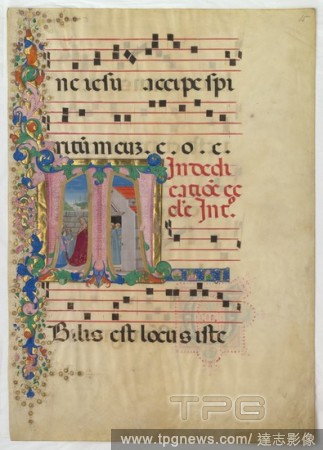 ne iesu accipe spi
ritū meuz. c. o. c.
In dedi
catiōe ec
cl'e Int°.
T
Bilis est locus iste
TPG
www.tpgnews.com/達志影像